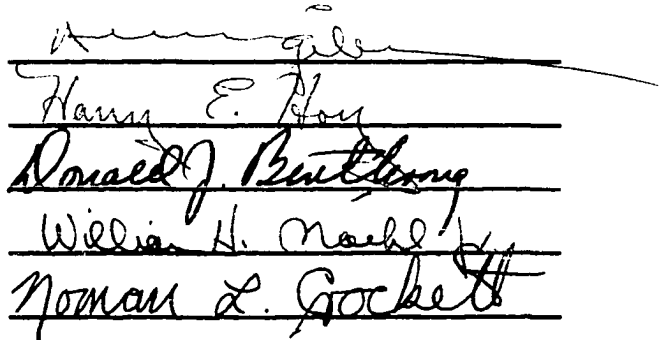 Harry E. Hoy
Donald J. Berthrong
William H. Maehl Jr.
Norman L. Crockett